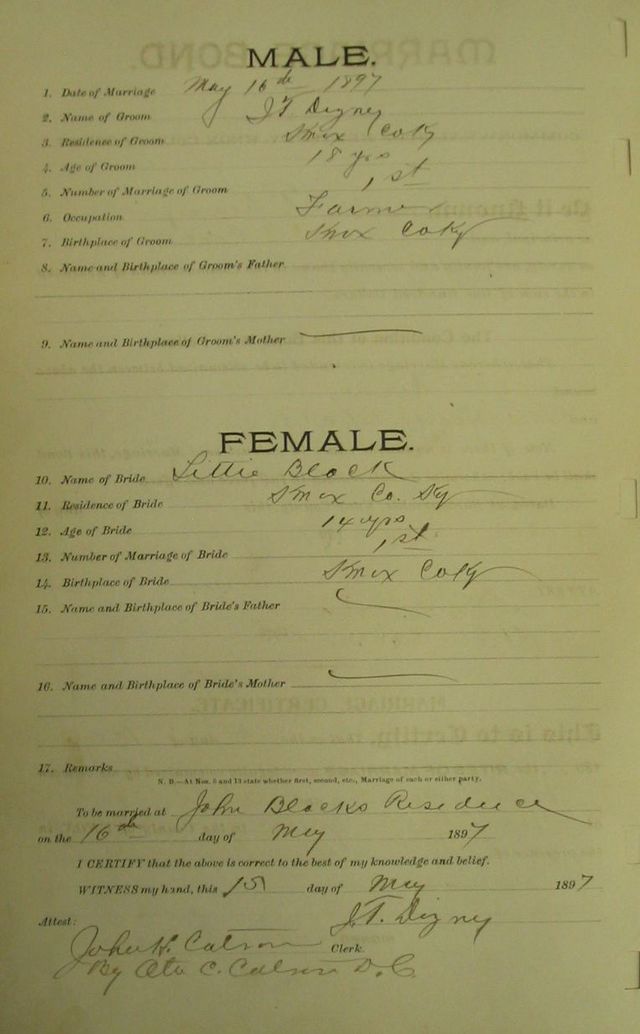 MALE.
1. Date of Marriage May 16th 1897
2. Name of Groom J T Digney
3. Residence of Groom Knox Co Ky
4. Age of Groom 18 yrs
5. Number of Marriage of Groom 1st
6. Occupation Farmer
7. Birthplace of Groom Knox Co Ky
8. Name and Birthplace of Groom's Father
9. Name and Birthplace of Groom's Mother
FEMALE.
10. Name of Bride Lettie Block
11. Residence of Bride Knox Co. Ky
12. Age of Bride 14 yrs
13. Number of Marriage of Bride 1st
14. Birthplace of Bride Knox Co Ky
15. Name and Birthplace of Bride's Father
16. Name and Birthplace of Bride's Mother
17. Remarks
N. B.—At Nos. 5 and 13 state whether first, second, etc., Marriage of each or either party.
To be married at John Blocks Residence
on the 16th day of May 1897
I CERTIFY that the above is correct to the best of my knowledge and belief.
WITNESS my hand, this 15 day of May 1897
Attest: J. T. Digney
John H. Catron Clerk
By C. Catron D. C.